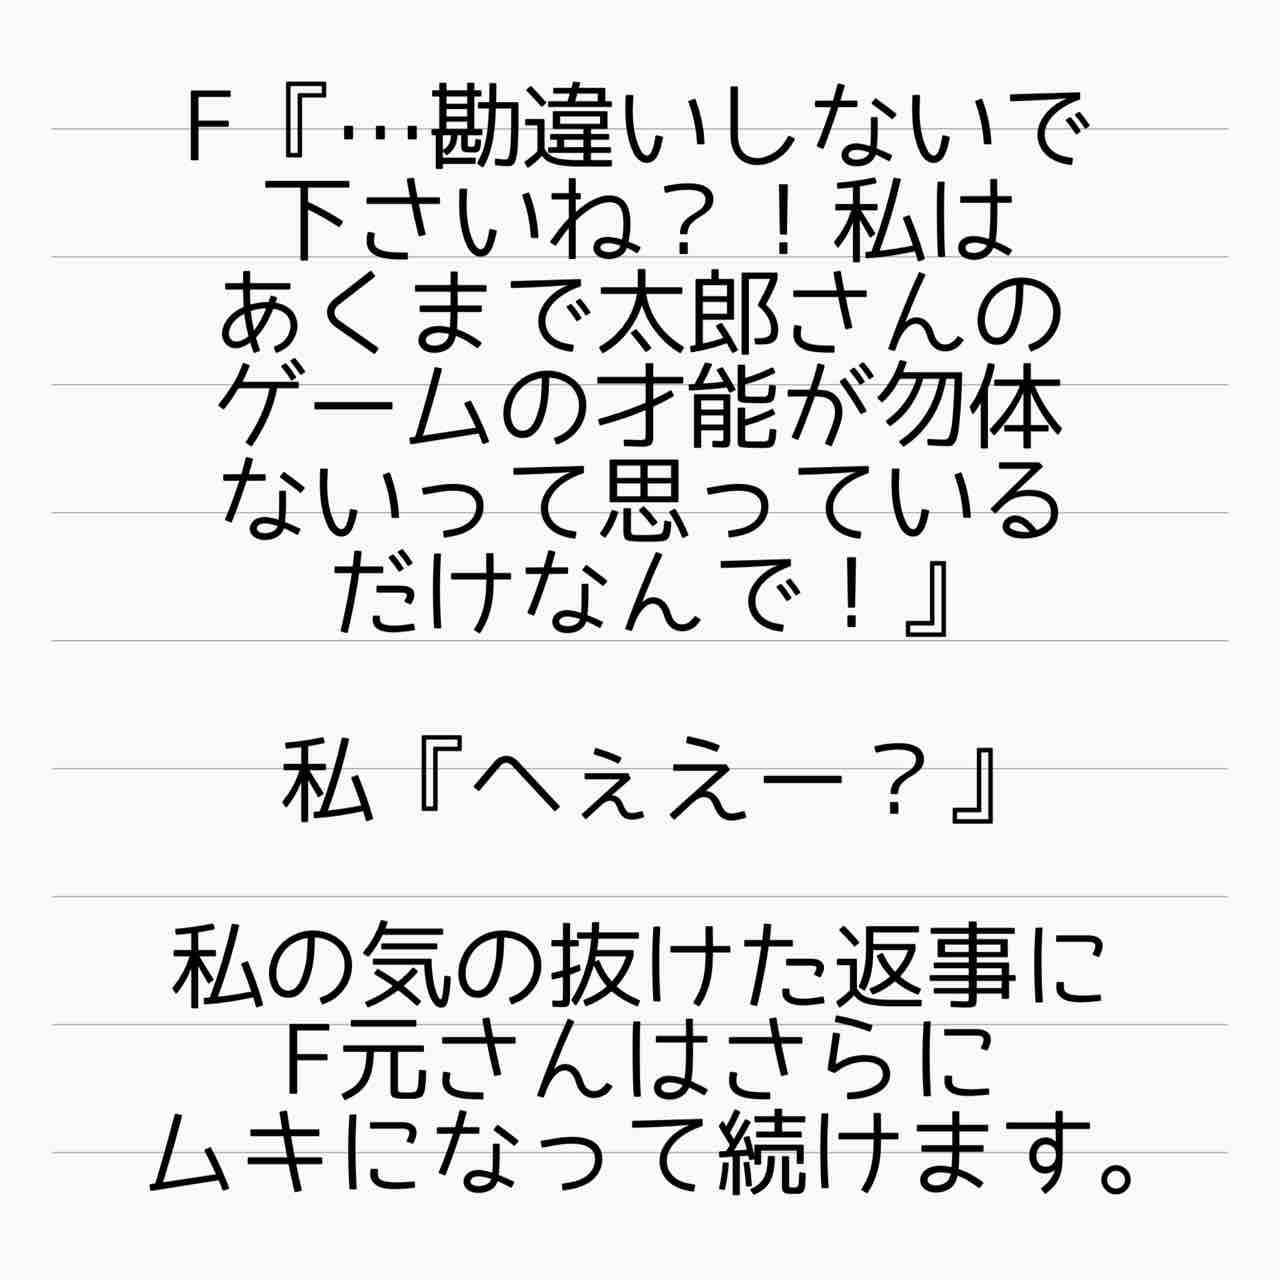 F『…勘違いしないで
下さいね？！私は
あくまで太郎さんの
ゲームの才能が勿体
ないって思っている
だけなんで！』
私『へぇえー？』
私の気の抜けた返事に
F元さんはさらに
ムキになって続けます。